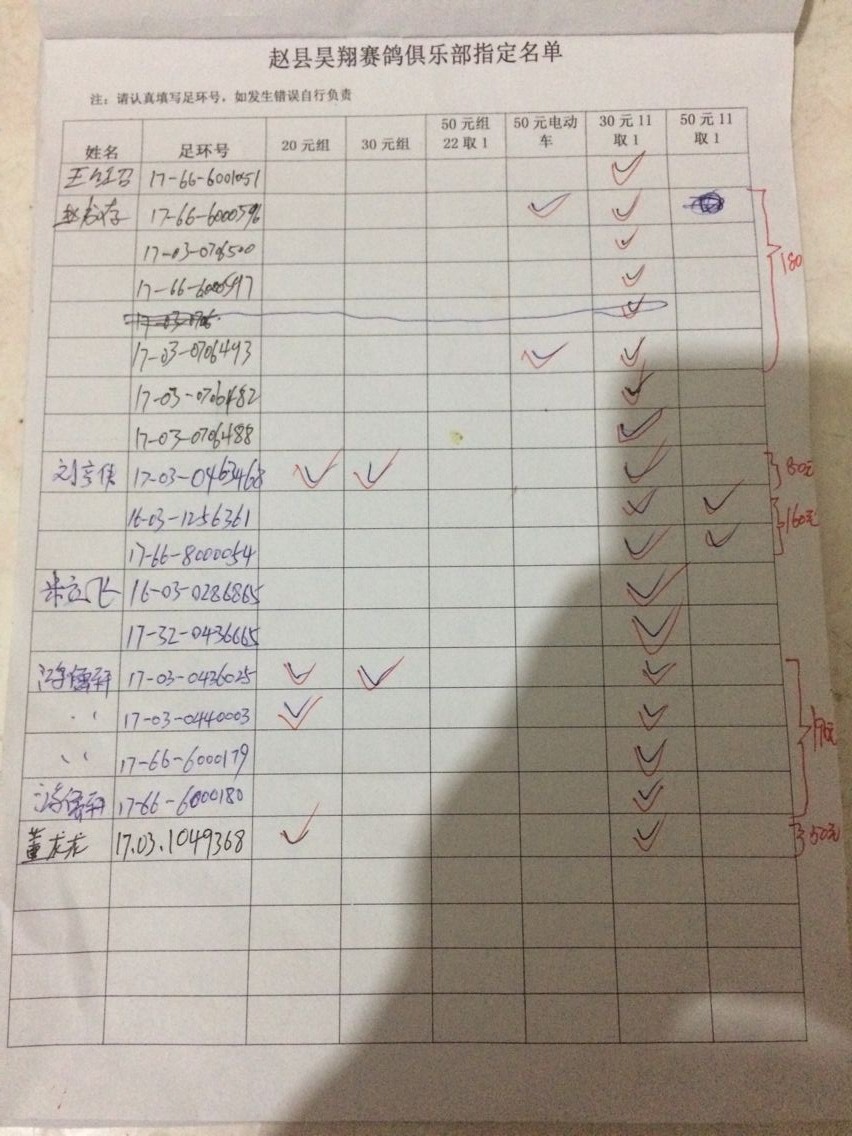 赵县昊翔赛鸽俱乐部指定名单
注：请认真填写足环号，如发生错误自行负责
姓名 足环号 20元组 30元组 50元组22取1 50元电动车 30元11取1 50元11取1
17-66-6001051 ✓
17-66-6000596 ✓ ✓
17-03-0706500 ✓
17-66-6000597 ✓
17-03-0706 ✓
180
17-03-0706493 ✓ ✓
17-03-0706482 ✓
17-03-0706488 ✓
17-03-0463468 ✓ ✓ ✓ 80元
16-03-1256361 ✓ ✓
17-66-8000054 ✓ ✓
160元
米立飞 16-03-0286865 ✓
17-32-0436665 ✓
17-03-0436025 ✓ ✓ ✓
17-03-0440003 ✓ ✓
17-66-6000179 ✓
17-66-6000180 ✓
董龙龙 17.03.1049368 ✓ ✓ 50元